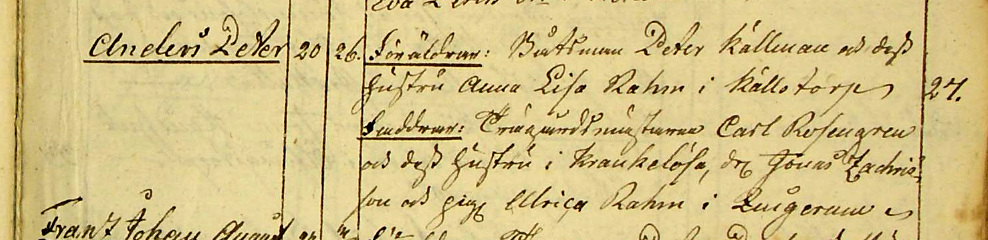 Anders Peter 20 26. Föräldrar: Båtsman Peter Källman och dess
hustru Anna Lisa Rahm i Källstorp 27.
Faddrar: Trägårdsmästaren Carl Rosengren
och dess hustru i Krankelösa, dr. Jonas Zachris-
son och pig. Ulrica Rahm i Ljungerum
Frantz Johan August